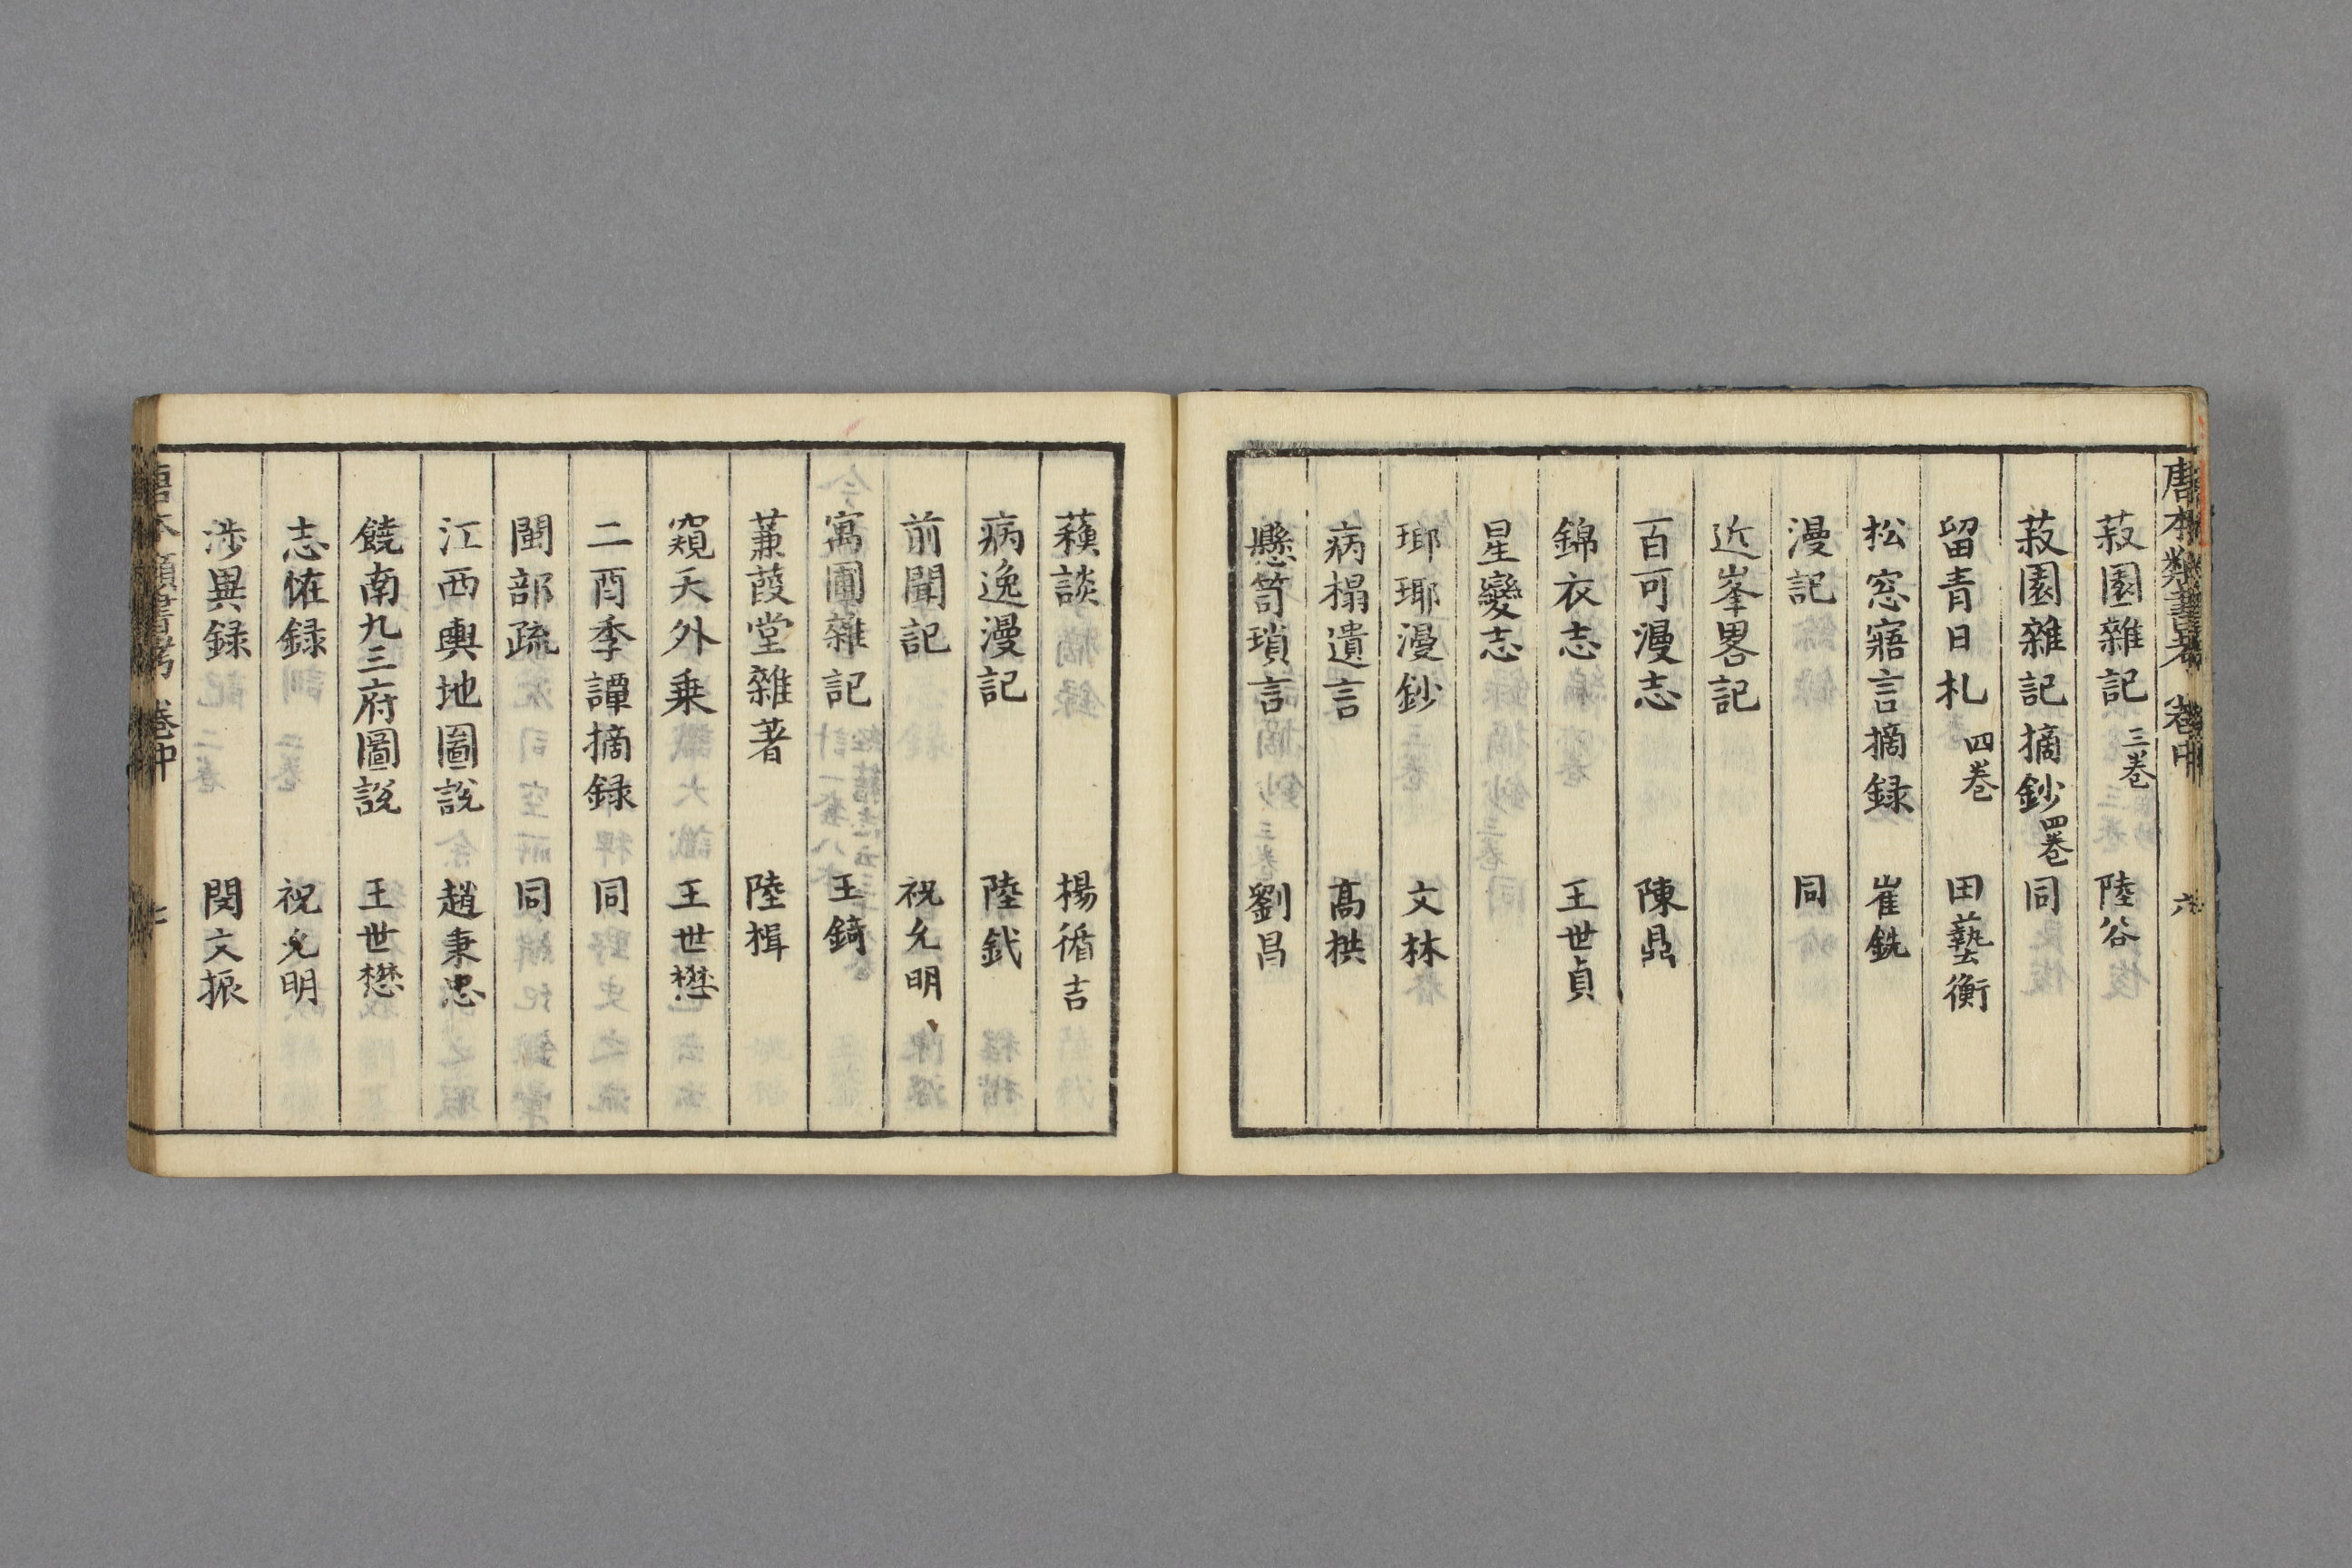 唐本類書考 卷中 六
菽園雜記 三卷 陸谷
菽園雜記摘鈔 四卷 同
留青日札 四卷 田藝衡
松窓寤言摘録 崔銑
漫記 同
近峯畧記
百可漫志 陳鼎
錦衣志 王世貞
星變志
瑯琊漫鈔 文林
病榻遺言 髙拱
懸笥瑣言 劉昌
蘓談 楊循吉
病逸漫記 陸釴
前聞記 祝允明
寓圃雜記 王錡
蒹葭堂雜著 陸楫
窺天外乗 王世懋
二酉季譚摘録 同
閩部疏 同
江西輿地圖説 趙秉忠
饒南九三府圖説 王世懋
志恠録 祝允明
渉異録 閔文振
唐本類書考 卷中 七